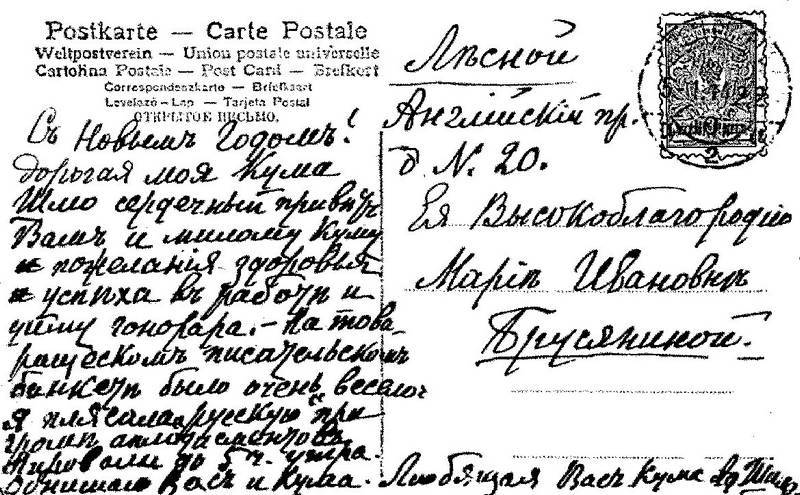 Postkarte — Carte Postale
Weltpostverein — Union postale universelle
Cartolina Postale — Post Card — Brefkort
Correspondenzkarte — Briefkaart
Levelező-Lap — Tarjeta Postal
ОТКРЫТОЕ ПИСЬМО.
Съ Новымъ Годомъ!
дорогая моя Кума
Шлю сердечный привѣтъ
Вамъ и милому Куму
и пожеланія здоровья
и успѣха въ работѣ и
гонорара. — На това-
рищескомъ писательскомъ
банкетѣ было очень весело
я плясала "русскую" при
громѣ апплодисментовъ
Пировали до 5 ч. утра.
Васъ и Кума. Любящая Васъ Кума
Лѣсной
Англійскій пр.
д N. 20.
Ея Высокоблагородію
Маріи Ивановнѣ
Брусяниной.
2